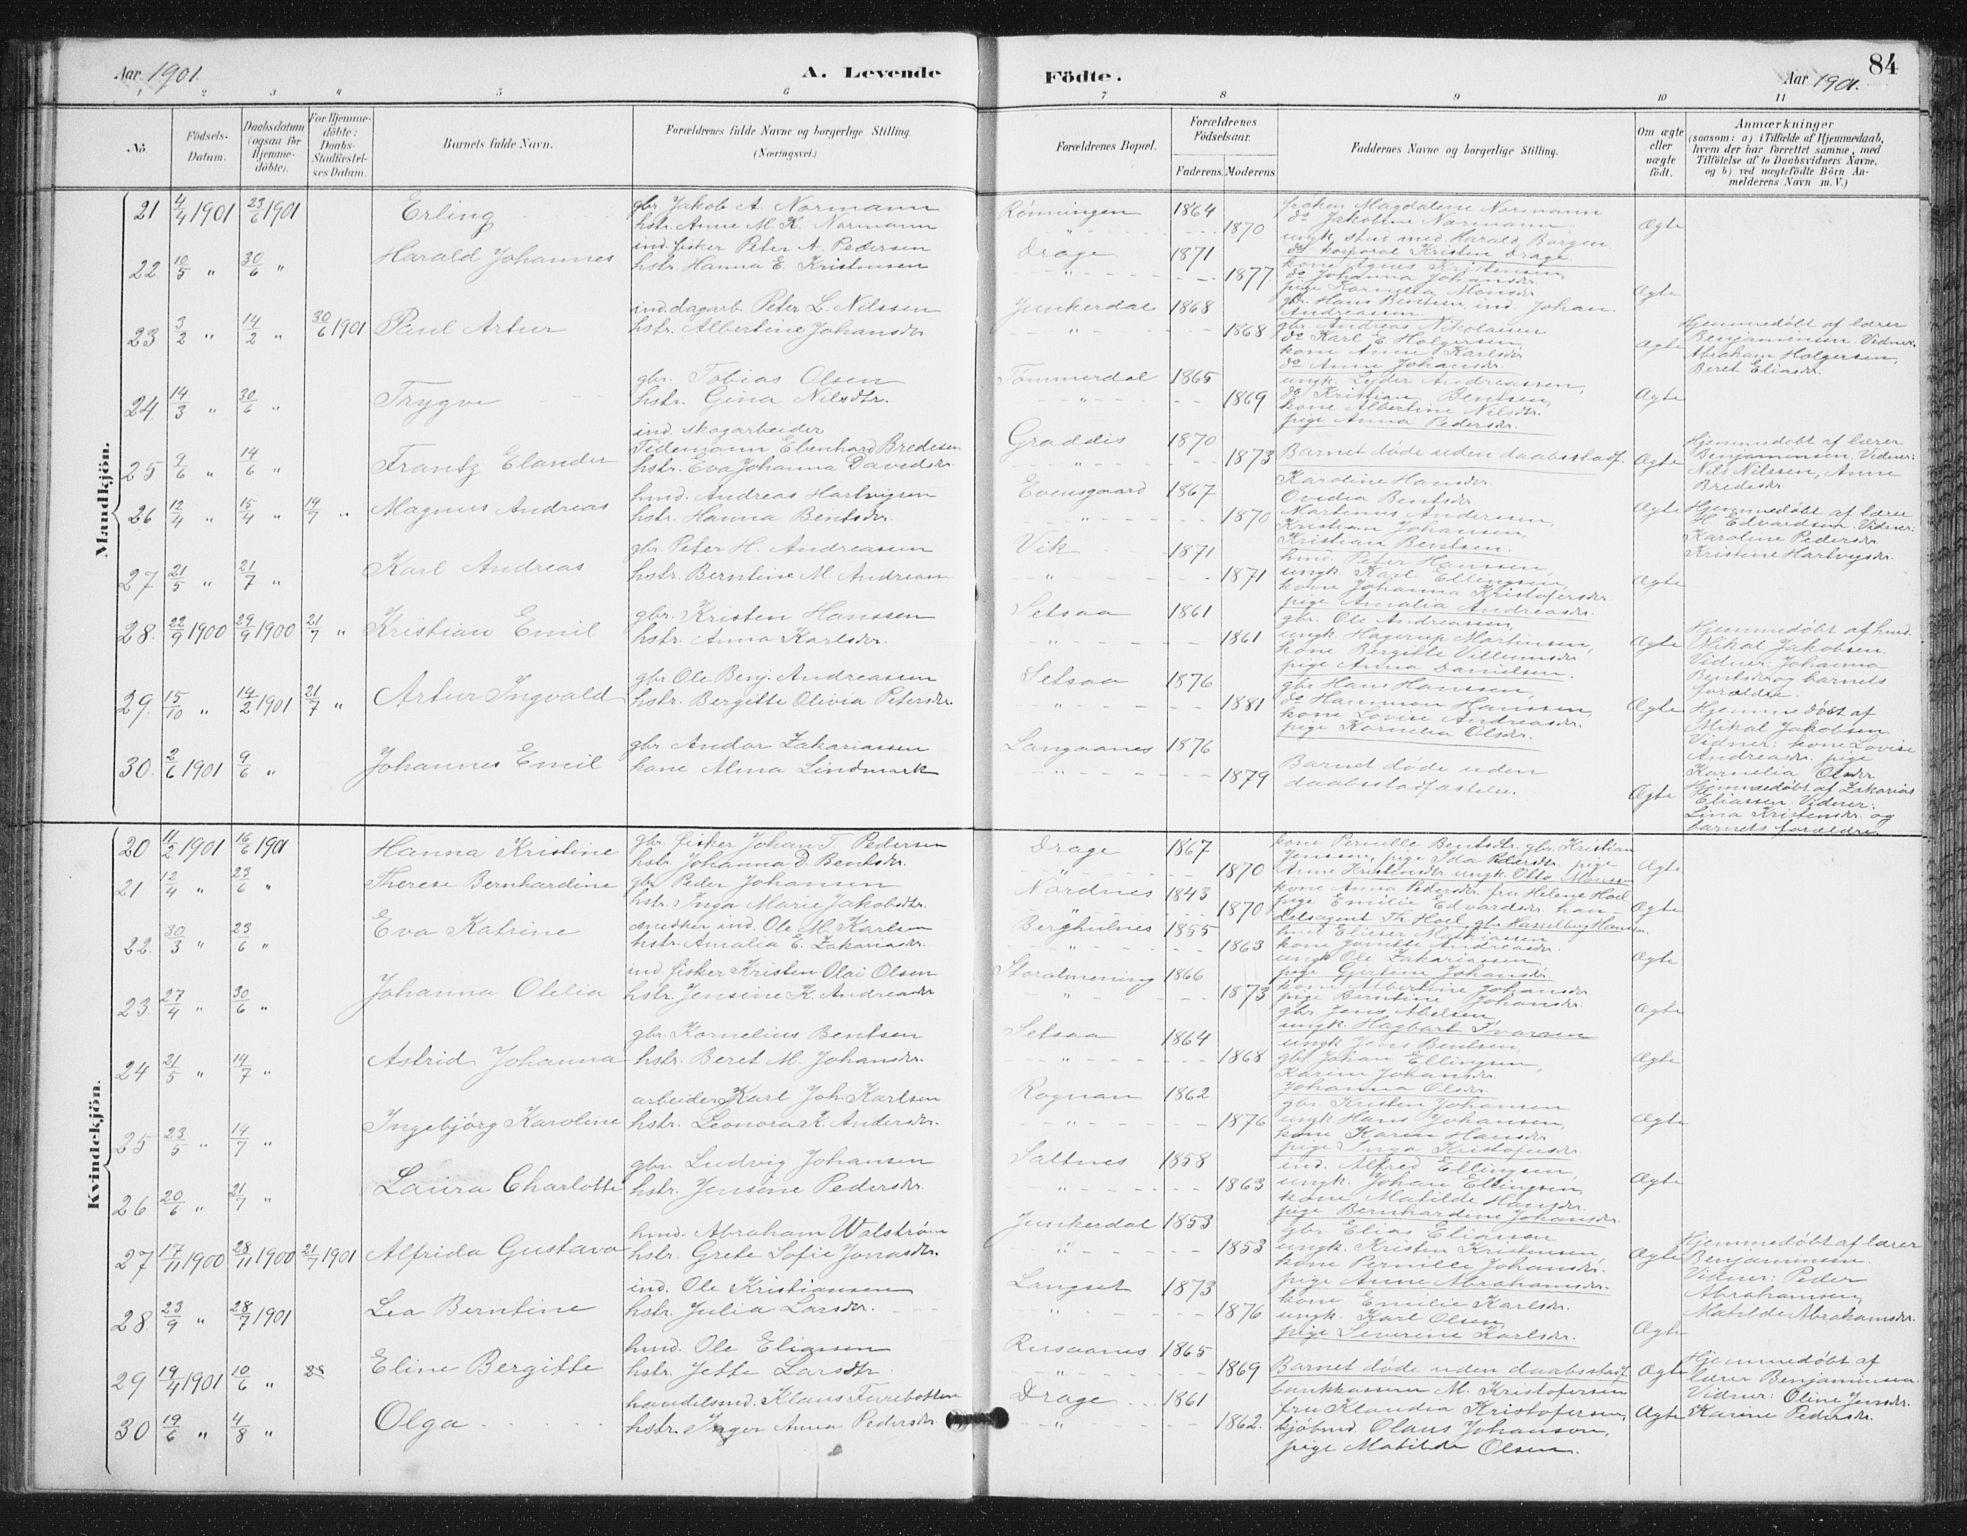 Aar 1901. A. Levende Födte. Aar 1901. 84
1 2 3 4 5 6 7 8 9 10 11
No. Födsels-Datum. Daabsdatum (ogsaa for Hjemme-döbte). For Hjemme-döbte: Daabs-Stadfæstel-ses Datum. Barnets fulde Navn. Forældrenes fulde Navne og borgerlige Stilling. (Næringsvei.) Forældrenes Bopæl. Forældrenes Födselsaar. Faderens. Moderens. Faddernes Navne og borgerlige Stilling. Om ægte eller uægte födt. Anmærkninger (saasom: a) i Tilfælde af Hjemmedaab, hvem der har forrettet samme, med Tilföielse af to Daabsvidners Navne, og b) ved uægtefödte Börn An-melderens Navn m. V.)
Mandkjön.
21 4/4 1901 23/6 1901 Erling gbr. Jakob A. Normann Rønningen 1864 frøken Magdalene Normann
hstr. Anne M. K. Normann 1870 do Jakobine Normann Ægte
ungk. stud. med. Harald Borgen
do korporal Kristen Drage
22 10/5 " 30/6 " Harald Johannes ind. fisker Peter A. Pedersen Drage 1871
hstr. Hanna E. Kristensen 1877 kone Agnes Kristensen
do Johanna Johansdr.
pige Kornelia Monsdr. Ægte
23 3/2 " 14/2 " 30/6 1901 Paul Artur ind. dagarb. Peter L. Nilssen Junkerdal 1868 gbr. Hans Bentsen, ind. Johan Andreassen
hstr. Albertine Johansdr. 1868 gbr. Andreas Nikolaisen Hjemmedøbt af lærer
do Karl E. Holgersen, Ægte Benjaminsen. Vidner:
kone Anne Karlsdr. Abraham Holgersen,
do Anne Johansdr. Beret Eliasdr.
24 14/3 " 30/6 " Trygve gbr. Tobias Olsen Tømmerdal 1865 ungk. Lyder Andreassen,
hstr. Gina Nilsdtr. 1869 do Kristian Bentsen, Ægte
kone Albertine Nilsdtr.
pige Anna Pedersdr.
25 9/6 " 14/6 " Frantz Elander ind. skogarbeider Graddis 1870
Tidemann Ebenhard Bredesen Hjemmedøbt af lærer
hstr. Eva Johanna Davidsdr. 1873 Barnet døde uden daabsstadf. Ægte Benjaminsen, Vidner:
Nils Nilssen, Anne
Bredesdr.
26 12/4 " 15/4 " 14/7 " Magnus Andreas hmd. Andreas Hartvigsen Evensgaard 1867 Karoline Hansdr.
hstr. Hanna Bentsdr. 1870 Ovidia Bentsdr. Ægte Hjemmedøbt af lærer
Martinus Andersen, H. Edvardsen. Vidner:
Kristian Johansen, Karoline Pedersdr.
Kristian Bentsen. Kristine Hartvigsdr.
27 21/5 " 21/7 " Karl Andreas gbr. Peter H. Andreassen Vik 1871 hmd. Peter Hanssen,
hstr. Berntine M. Andreassen 1871 ungk. Karl Ellingsen, Ægte
kone Johanna Kristofersdr.
pige Amalia Andreasdr.
28. 22/9 1900 29/9 1900 21/7 " Kristian Emil gbr. Kristen Hanssen Setsaa 1861 gbr. Ole Andreassen,
hstr. Anna Karlsdr. 1861 ungk. Hagerup Martinsen, Ægte Hjemmedøbt af hmd.
kone Bergitte Villumsdr. Mikal Jakobsen.
pige Anna Danielsen. Vidner: Johanna
Bentsdr og barnets
forældre.
29. 15/10 " 14/2 1901 21/7 " Artur Ingvald gbr. Ole Benj. Andreassen Setsaa 1876 gbr. Hans Hanssen,
hstr. Bergitte Olivia Petersdr. 1881 do Hammon Hanssen, Ægte Hjemmedøbt af
kone Lovise Andreasdr. Mikal Jakobsen
pige Kornelia Olsdr. Vidner: kone Lovise
Andreasdr. pige
Kornelia Olsdr
30. 2/6 1901 9/6 " Johannes Emil gbr. Andor Zakariassen Langaanes 1876 Barnet døde uden
kone Alma Lindmark 1879 daabsstadfæstelse. Ægte Hjemmedøbt af Zakarias
Eliassen. Vidner:
Lina Kristensdr. og
barnets forældre
Kvindekjön.
20 11/2 1901 16/6 1901 Hanna Kristine gbr. fisker Johan T. Pedersen Drage 1867 kone Pernille Bentsdtr. gbr. Kristian
hstr. Johanna D. Bentsdr. 1870 Jenssen, pige Ida Pedersdr. pige Ægte
Anne Kristensdr ungk. Otto Monsen
21 12/4 " 23/6 " Therese Bernhardine gbr. Peder Johansen Nordnes 1843 kone Anna Pedersdr. fru Helene Hoel
hstr. Inga Marie Jakobsdtr. 1870 pige Emilie Edvardsdr. han- Ægte
delsagent Th. Hoel, gbr. Hasselberg Hansen
22. 30/3 " 23/6 " Eva Katrine snedker ind. Ole M. Karlsen Berghulnes 1855 hmd. Elieser Mathiassen
hstr. Amalia E. Zakariasdr. 1863 kone Janette Andreasdr.
ungk. Ole Zakariassen, Ægte
pige Gjertine Johansdr.
23. 27/4 " 30/6 " Johanna Olelia ind. fisker Kristen Olai Olsen Storalmening 1866 kone Albertine Johansdr
hstr. Jensine K. Andreasdr 1873 pige Berntine Johansdr.
gbr. Jens Abelsen, Ægte
ungk. Hagbart Ivarsen
24 21/5 " 14/7 " Astrid Johanna gbr. Kornelius Bentsen Setsaa 1864 ungk. Jens Bentsen
hstr. Beret M. Johansdr. 1868 gbr Johan Ellingsen, Ægte
Karine Johansdr.
Johanna Olsdr.
25 23/5 " 14/7 " Ingebjörg Karoline arbeider Karl Joh. Karlsen Rognan 1862 gbr. Kristen Johansen
hstr. Leonora K. Andersdr. 1876 ungk. Hans Johansen, Ægte
kone Karen Hansdr
pige Inga Kristofersdr.
26 20/6 " 21/7 " Laura Charlotte gbr. Ludvig Johansen Saltnes 1858 ind. Alfred Ellingsen,
hstr. Jensine Pedersdr. 1863 ungk. Johan Ellingsen, Ægte
kone Matilde Hansdr.
pige Bernhardine Johansdr.
27 17/11 1900 28/11 1900 21/7 1901 Alfrida Gustava hmd. Abraham Walström Junkerdal 1853 gbr. Elias Eliassen
hstr. Grete Sofie Jonasdr. 1853 ungk. Kristen Kristensen, Ægte Hjemmedøbt af lærer
kone Pernille Johansdr. Benjaminsen.
pige Anne Abrahamsdr. Vidner: Peder
Abrahamsen,
Matilde Abrahamsdr.
28. 23/9 " 28/7 1901 Lea Berntine ind. Ole Kristiansen Langset 1873 kone Emilie Karlsdr.
hstr. Julia Larsdr. 1876 ungk. Karl Olsen,
pige Severine Karlsdr. Ægte
29 19/4 1901 10/6 " 28 Eline Bergitte hmd. Ole Eliassen Rusaanes 1865 Hjemmedøbt af
hstr. Jette Larsdtr. 1869 Barnet døde uden daabsstadf. Ægte lærer Benjaminsen
Vidner: Oline Jensdr.
Karine Pedersdr.
30 19/6 " 4/8 " Olga handelsmd. Klaus Furebotten Drage 1861 bankkasserer M. Kristofersen
hstr. Inger Anna Pedersdr. 1862. fru Klaudia Kristofersen, Ægte
kjøbmd. Olaus Johanson,
pige Matilde Olsen.